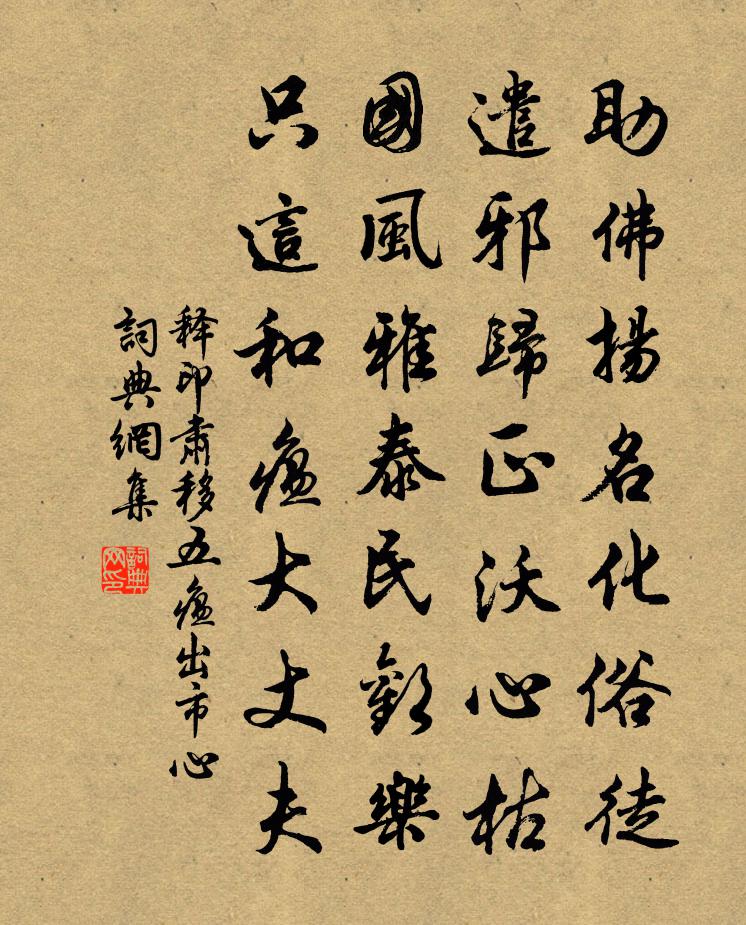 助佛揚名化俗徒
遣邪歸正沃心枯
國風雅泰民歡樂
只這和瘟大丈夫
释印肅移五瘟出市心
詞典網集
詞典网印